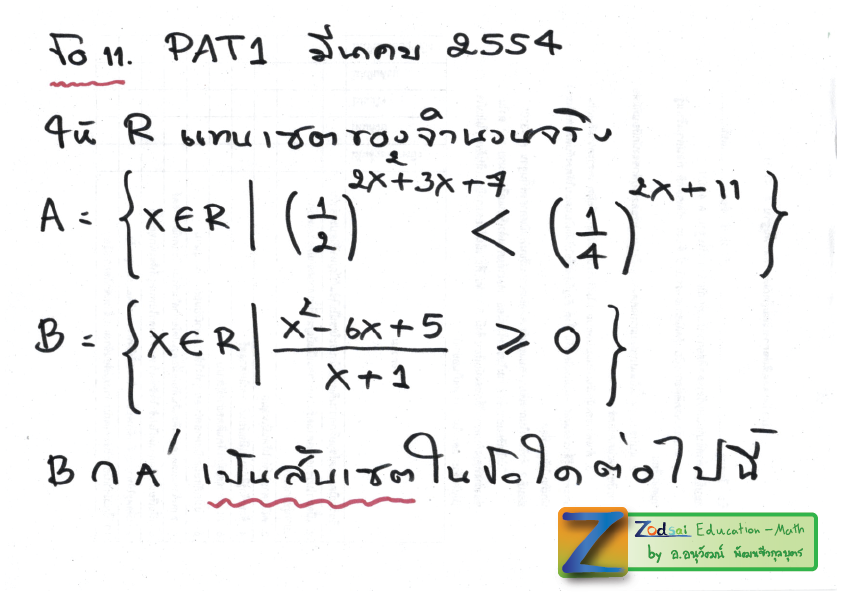 ข้อ 11. PAT1 มีนาคม 2554
ให้ R แทนเซตของจำนวนจริง
A = { x ∈ R | (1/2)^(2x²+3x+7) < (1/4)^(2x+11) }
B = { x ∈ R | (x²-6x+5)/(x+1) ≥ 0 }
B ∩ A′ เป็นสับเซตในข้อใดต่อไปนี้
Zodsai Education - Math
by อ.อนุวัฒน์